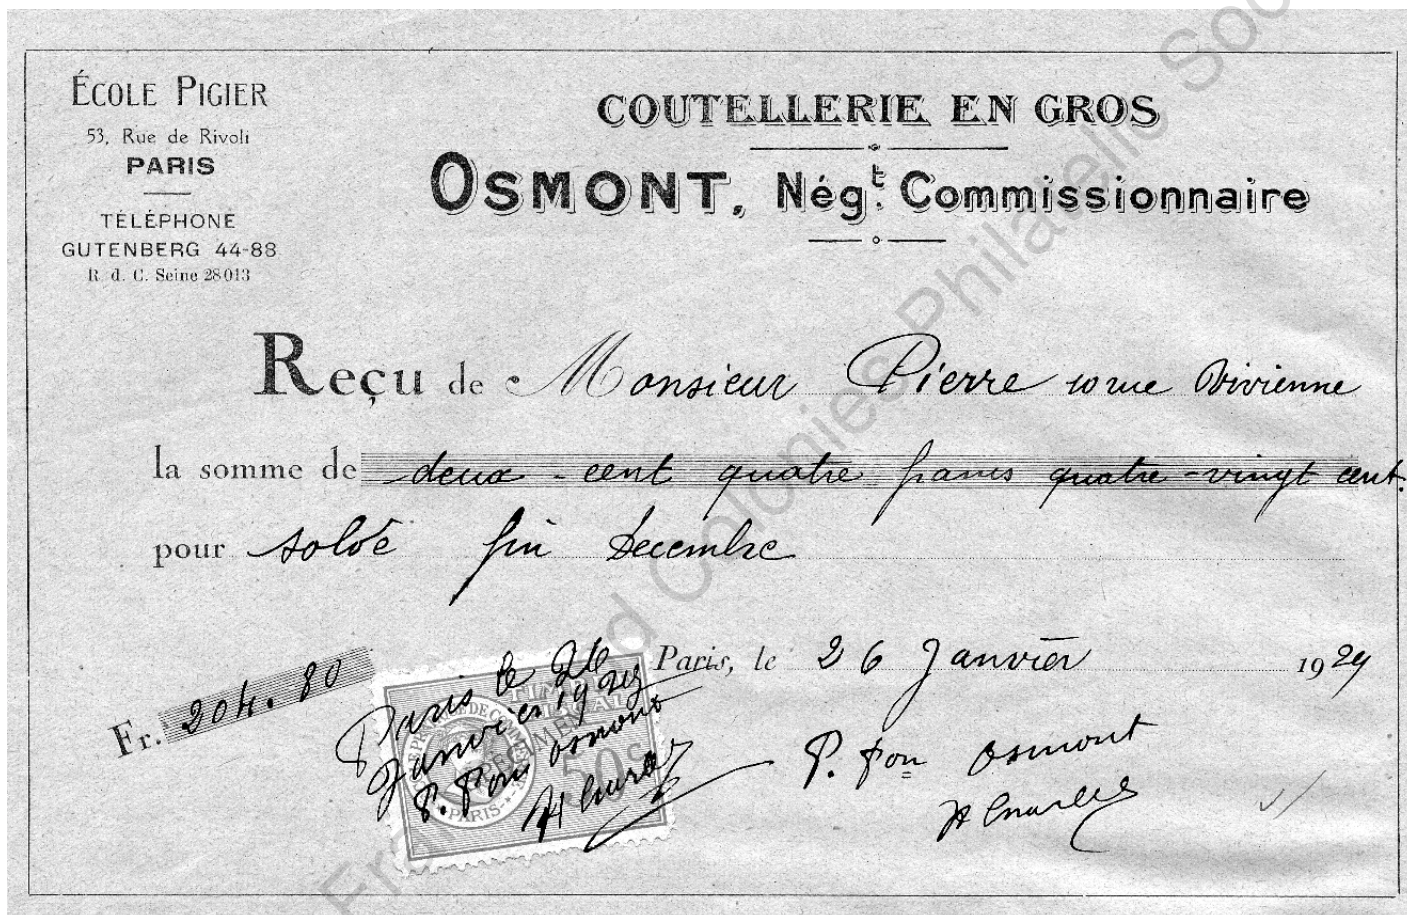 ÉCOLE PIGIER
53, Rue de Rivoli
PARIS
TÉLÉPHONE
GUTENBERG 44-88
R. d. C. Seine 28013
COUTELLERIE EN GROS
OSMONT, Nég.t Commissionnaire
Reçu de Monsieur Pierre 10 rue Vivienne
la somme de deux-cent quatre francs quatre-vingt cent.
pour solde fin Décembre
Fr. 204.80
Paris, le 26 Janvier 1929
P. Pon Osmont
Paris le 26
Janvier 1929
P. Pon Osmont
TIMBRE
FISCAL
SPÉCIMEN
50c
PARIS
French Colonies Philatelic